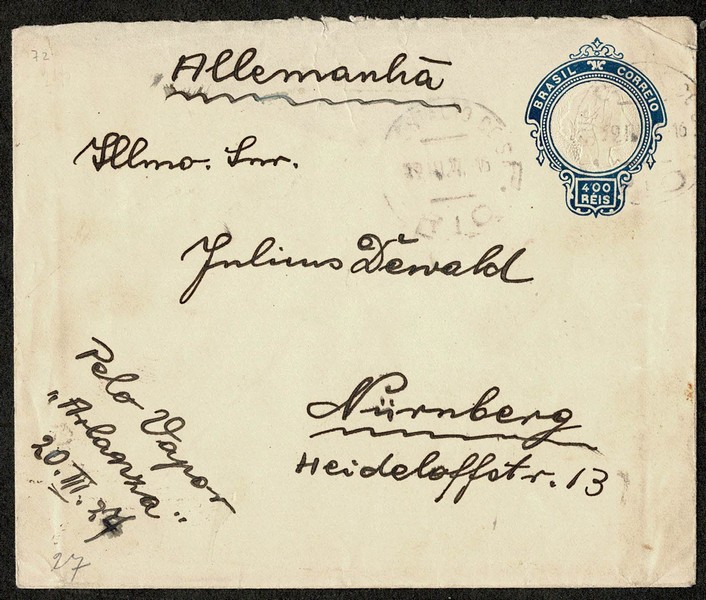 72
Allemanhã
BRASIL CORREIO
400
RÉIS
Illmo. Snr.
Julius Dewald
Nürnberg
Heideloffstr. 13
Pelo Vapor
"Arlanza"
20.III.27
27